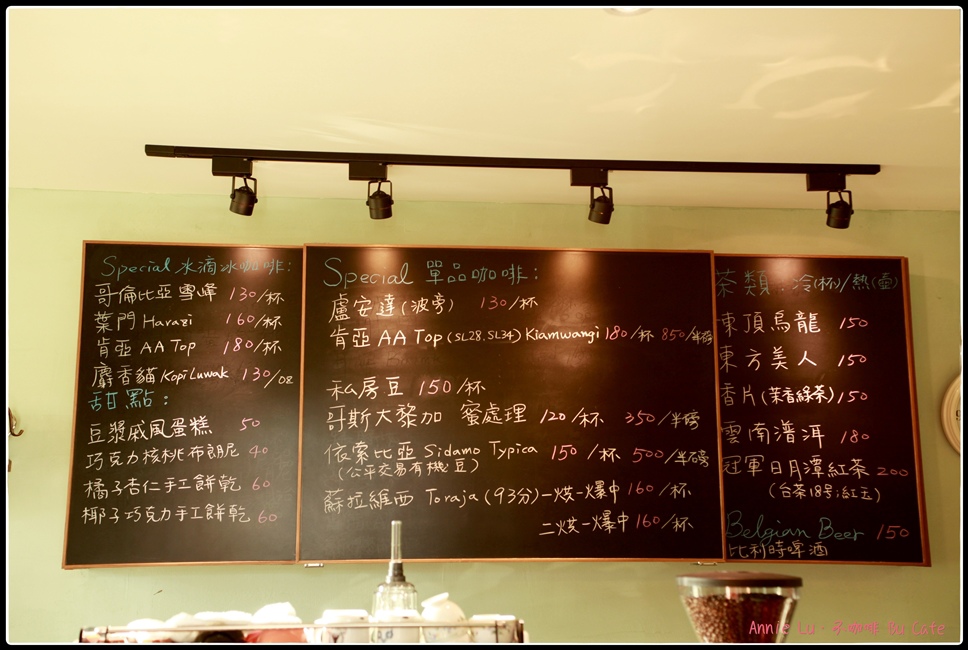 Special 冰滴冰咖啡:
哥倫比亞雪峰 130/杯
葉門 Harazi 160/杯
肯亞 AA Top 180/杯
麝香貓 Kopi Luwak 130/oz
甜點:
豆漿戚風蛋糕 50
巧克力核桃布朗尼 40
橘子杏仁手工餅乾 60
椰子巧克力手工餅乾 60
Special 單品咖啡:
盧安達(波旁) 130/杯
肯亞 AA Top (SL28.SL34) Kiamwangi 180/杯 850/半磅
私房豆 150/杯
哥斯大黎加 蜜處理 120/杯 350/半磅
依索比亞 Sidamo Typica 150/杯 500/半磅
(公平交易有機豆)
蘇拉維西 Toraja (93分) 一烘一爆中 160/杯
二烘一爆中 160/杯
茶類:冷(杯)/熱(壺)
東頂烏龍 150
東方美人 150
香片(茉香綠茶) 150
雲南潽洱 180
冠軍日月潭紅茶 200
(台茶18号;紅玉)
Belgian Beer 150
比利時啤酒
Annie Lu